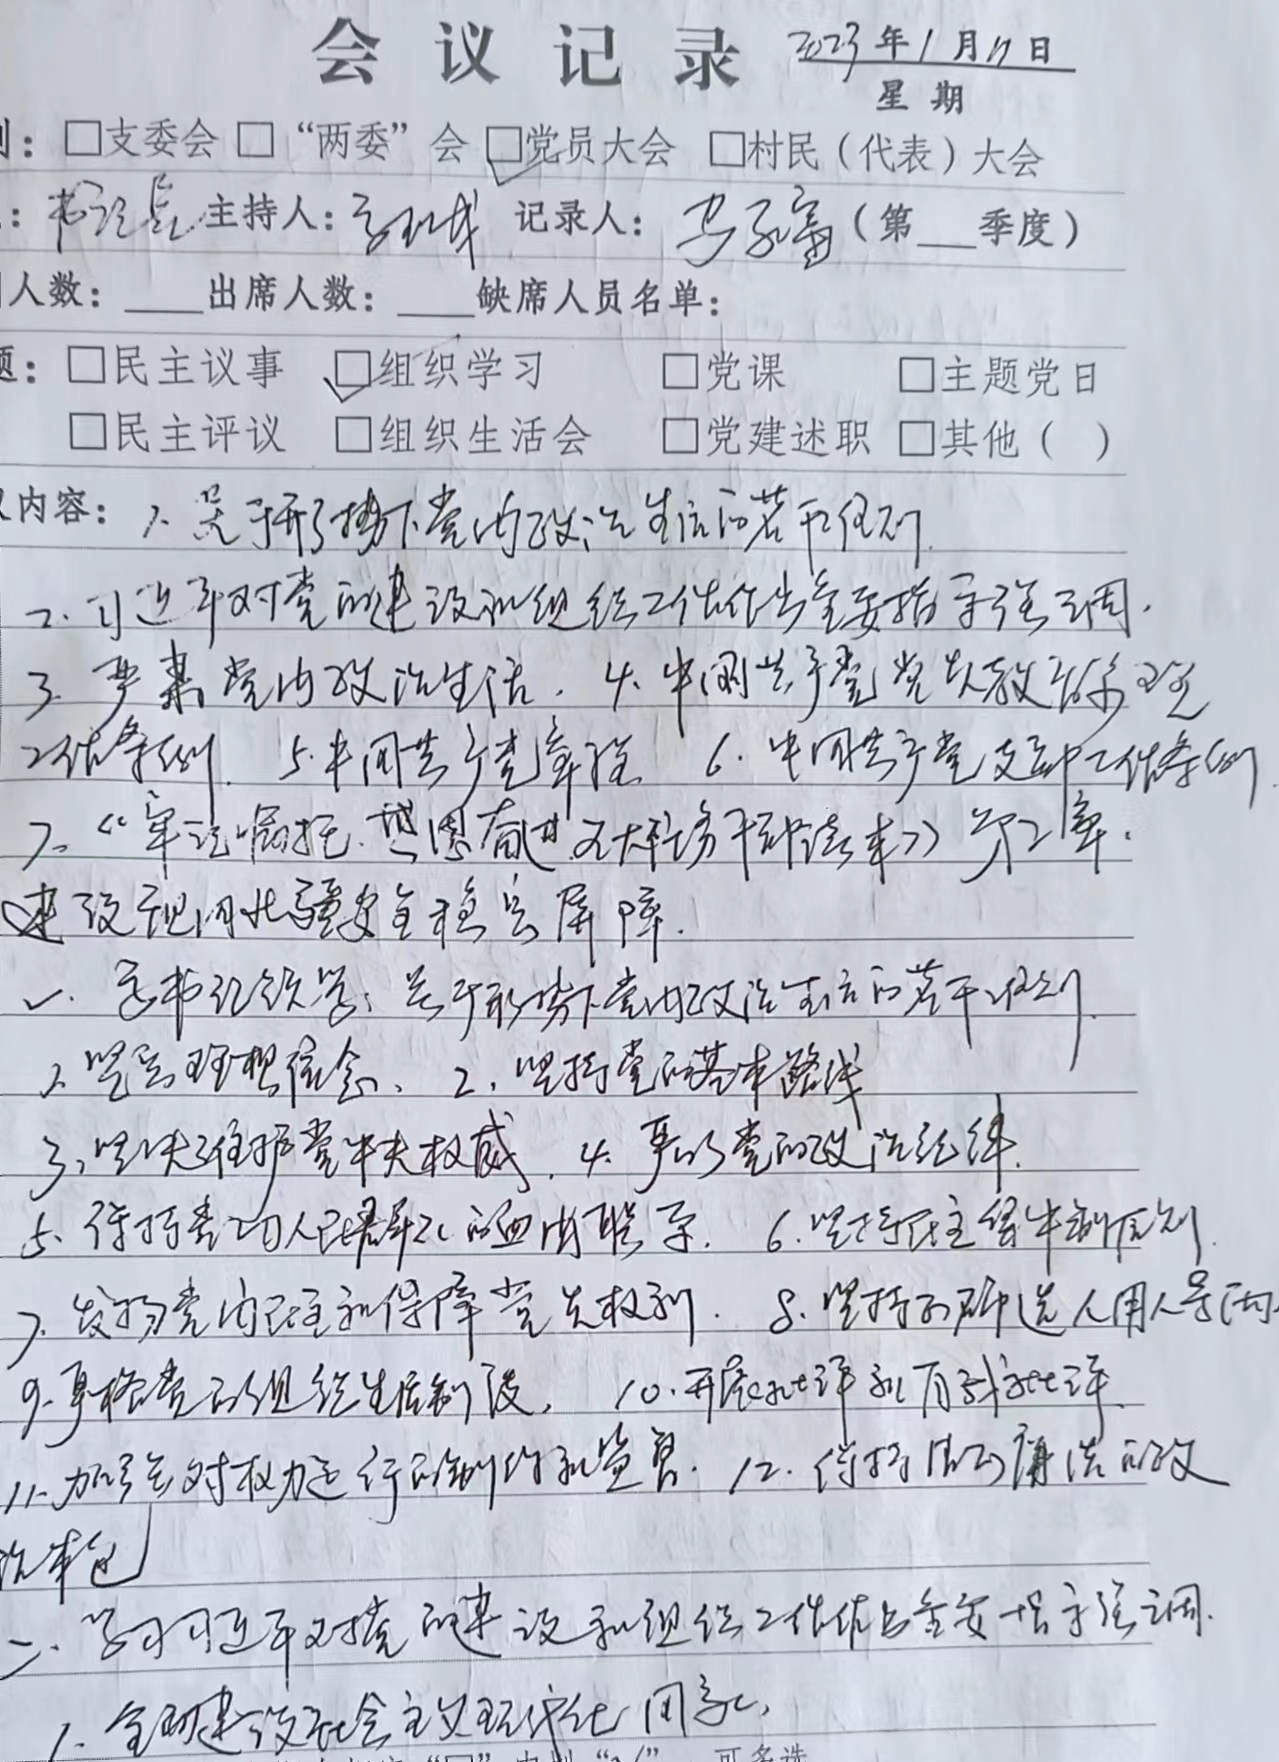 会议记录 2023年1月11日
星期
：□支委会 □“两委”会 ☑党员大会 □村民（代表）大会
：书记 主持人： 记录人： （第___季度）
人数：____出席人数：____缺席人员名单：
题：□民主议事 ☑组织学习 □党课 □主题党日
□民主评议 □组织生活会 □党建述职 □其他（ ）
内容：1.关于形势下党内政治生活的若干准则.
2.习近平对党的建设和组织工作作出重要指示强调.
3.严肃党内政治生活. 4.中国共产党党员教育管理
工作条例. 5.中国共产党章程 6.中国共产党支部工作条例.
7.《牢记嘱托.感恩奋进 干部读本》第2章.
建设祖国北疆安全稳定屏障.
书记领学：关于形势下党内政治生活的若干准则.
1.坚定理想信念、2.坚持党的基本路线
3.坚决维护党中央权威. 4.严明党的政治纪律.
5.保持党 人民群众的血肉联系. 6.坚持民主集中制原则.
7.发扬党内民主和保障党员权利. 8.坚持正确选人用人导向.
9.严格党的组织生活制度. 10.开展批评和自我批评.
11.加强对权力运行的制约和监督. 12.保持清正廉洁的政
治本色
二.学习习近平对党的建设和组织工作作出重要指示强调.
1.全面建设社会主义现代化国家，
“ ” “√” 可多选